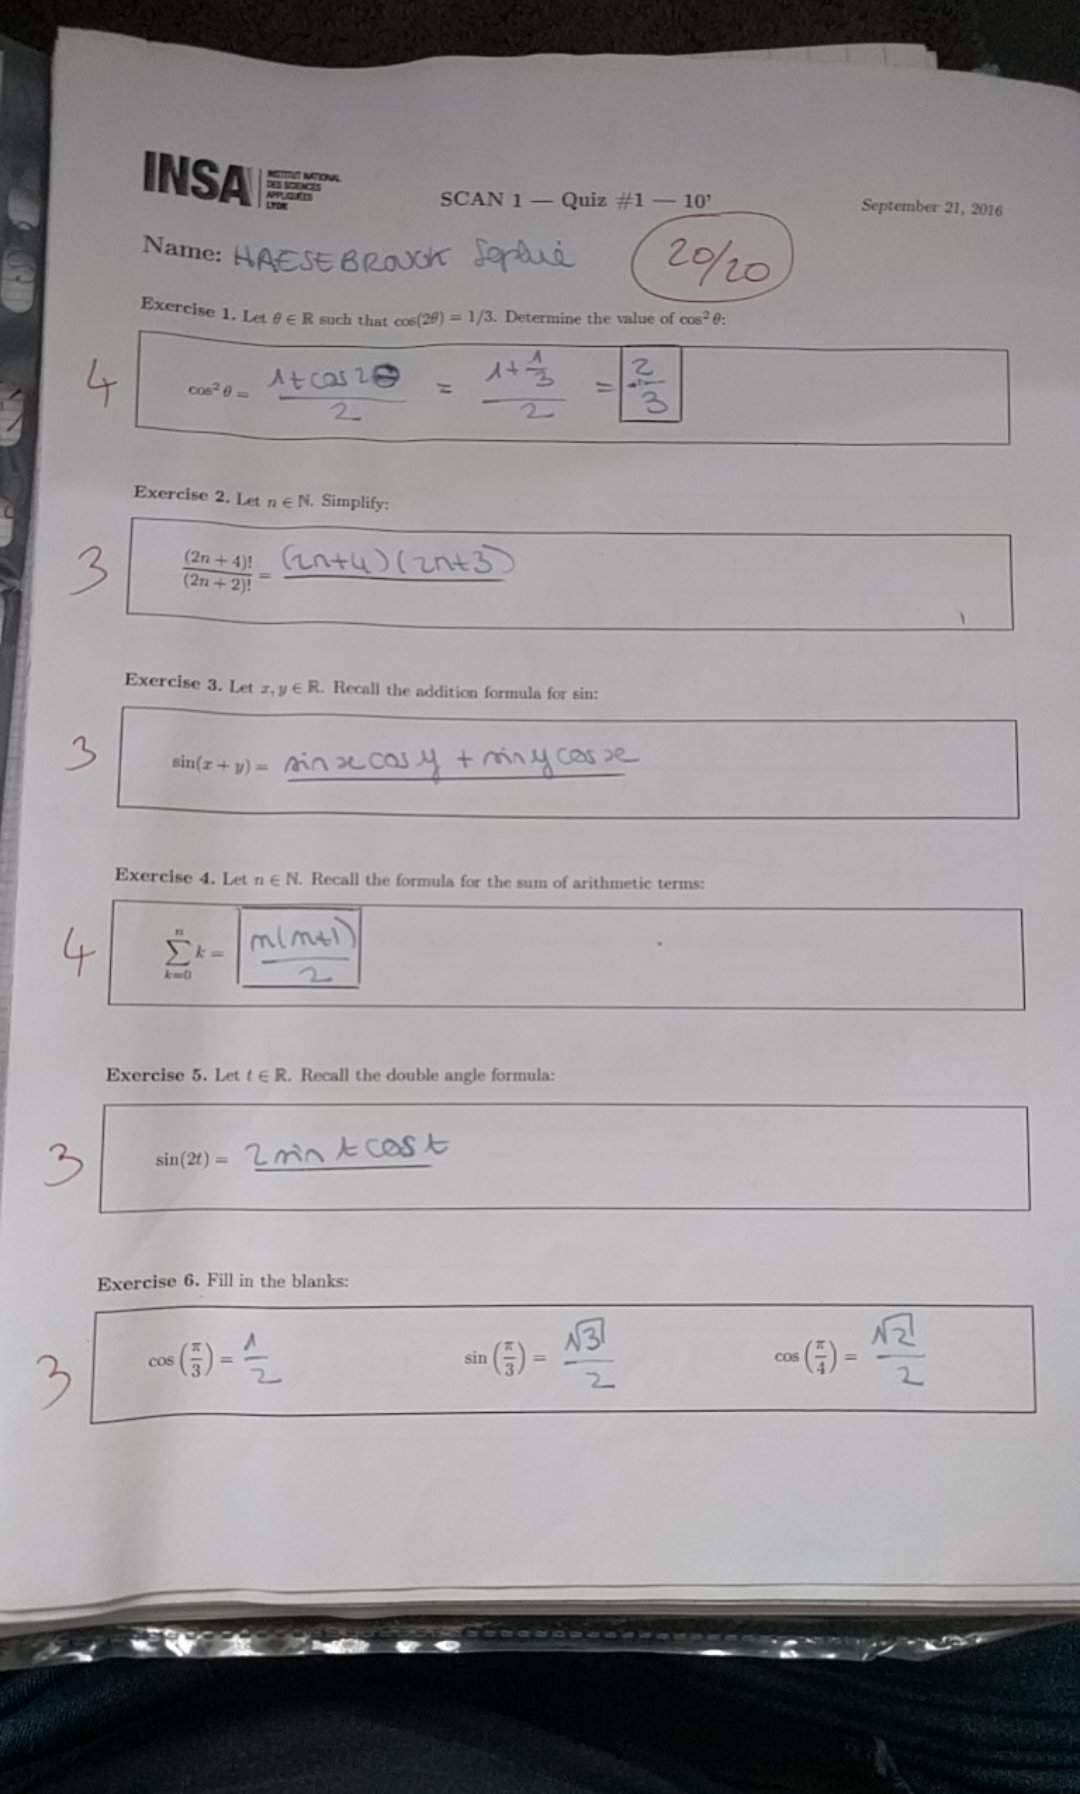 INSA INSTITUT NATIONAL
DES SCIENCES
APPLIQUÉES
LYON
SCAN 1 — Quiz #1 — 10’
September 21, 2016
Name: HAESEBROUCK Sophie
20/20
Exercise 1. Let θ ∈ ℝ such that cos(2θ) = 1/3. Determine the value of cos² θ:
4
cos² θ = (1+cos2θ)/2 = (1+1/3)/2 = 2/3
Exercise 2. Let n ∈ ℕ. Simplify:
3
(2n + 4)!/(2n + 2)! = (2n+4)(2n+3)
Exercise 3. Let x, y ∈ ℝ. Recall the addition formula for sin:
3
sin(x + y) = sin x cos y + sin y cos x
Exercise 4. Let n ∈ ℕ. Recall the formula for the sum of arithmetic terms:
4
n ∑ k=0 k = n(n+1)/2
Exercise 5. Let t ∈ ℝ. Recall the double angle formula:
3
sin(2t) = 2 sin t cos t
Exercise 6. Fill in the blanks:
3
cos (π/3) = 1/2 sin (π/3) = √3/2 cos (π/4) = √2/2